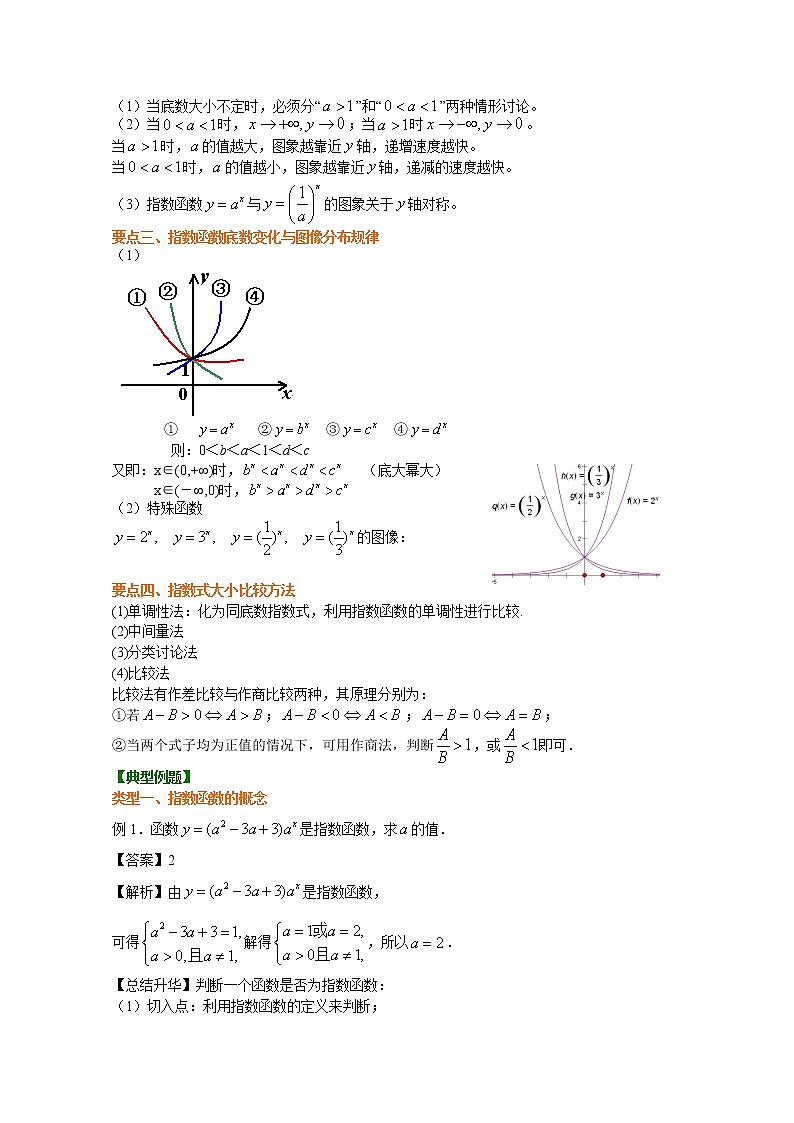 （1）当底数大小不定时，必须分“a＞1”和“0＜a＜1”两种情形讨论。
（2）当0＜a＜1时，x→+∞, y→0；当a＞1时x→−∞, y→0。
当a＞1时，a的值越大，图象越靠近y轴，递增速度越快。
当0＜a＜1时，a的值越小，图象越靠近y轴，递减的速度越快。
（3）指数函数y=a^x与y=(1/a)^x的图象关于y轴对称。
要点三、指数函数底数变化与图像分布规律
（1）
① ② ③ ④ y
1
0 x
① y=a^x ②y=b^x ③y=c^x ④y=d^x
则：0＜b＜a＜1＜d＜c
又即：x∈(0,+∞)时，b^x<a^x<d^x<c^x （底大幂大）
x∈(－∞,0)时，b^x>a^x>d^x>c^x
（2）特殊函数
y=2^x, y=3^x, y=(1/2)^x, y=(1/3)^x的图像：
6
h(x) = (1/3)^x
g(x) = 3^x
q(x) = (1/2)^x
f(x) = 2^x
4
2
-5
要点四、指数式大小比较方法
(1)单调性法：化为同底数指数式，利用指数函数的单调性进行比较.
(2)中间量法
(3)分类讨论法
(4)比较法
比较法有作差比较与作商比较两种，其原理分别为：
①若A−B>0⇔A>B；A−B<0⇔A<B；A−B=0⇔A=B；
②当两个式子均为正值的情况下，可用作商法，判断A/B>1，或A/B<1即可．
【典型例题】
类型一、指数函数的概念
例1．函数y=(a^2−3a+3)a^x是指数函数，求a的值．
【答案】2
【解析】由y=(a^2−3a+3)a^x是指数函数，
可得{a^2−3a+3=1, a>0,且a≠1,解得{a=1或a=2, a>0且a≠1,，所以a=2．
【总结升华】判断一个函数是否为指数函数：
（1）切入点：利用指数函数的定义来判断；